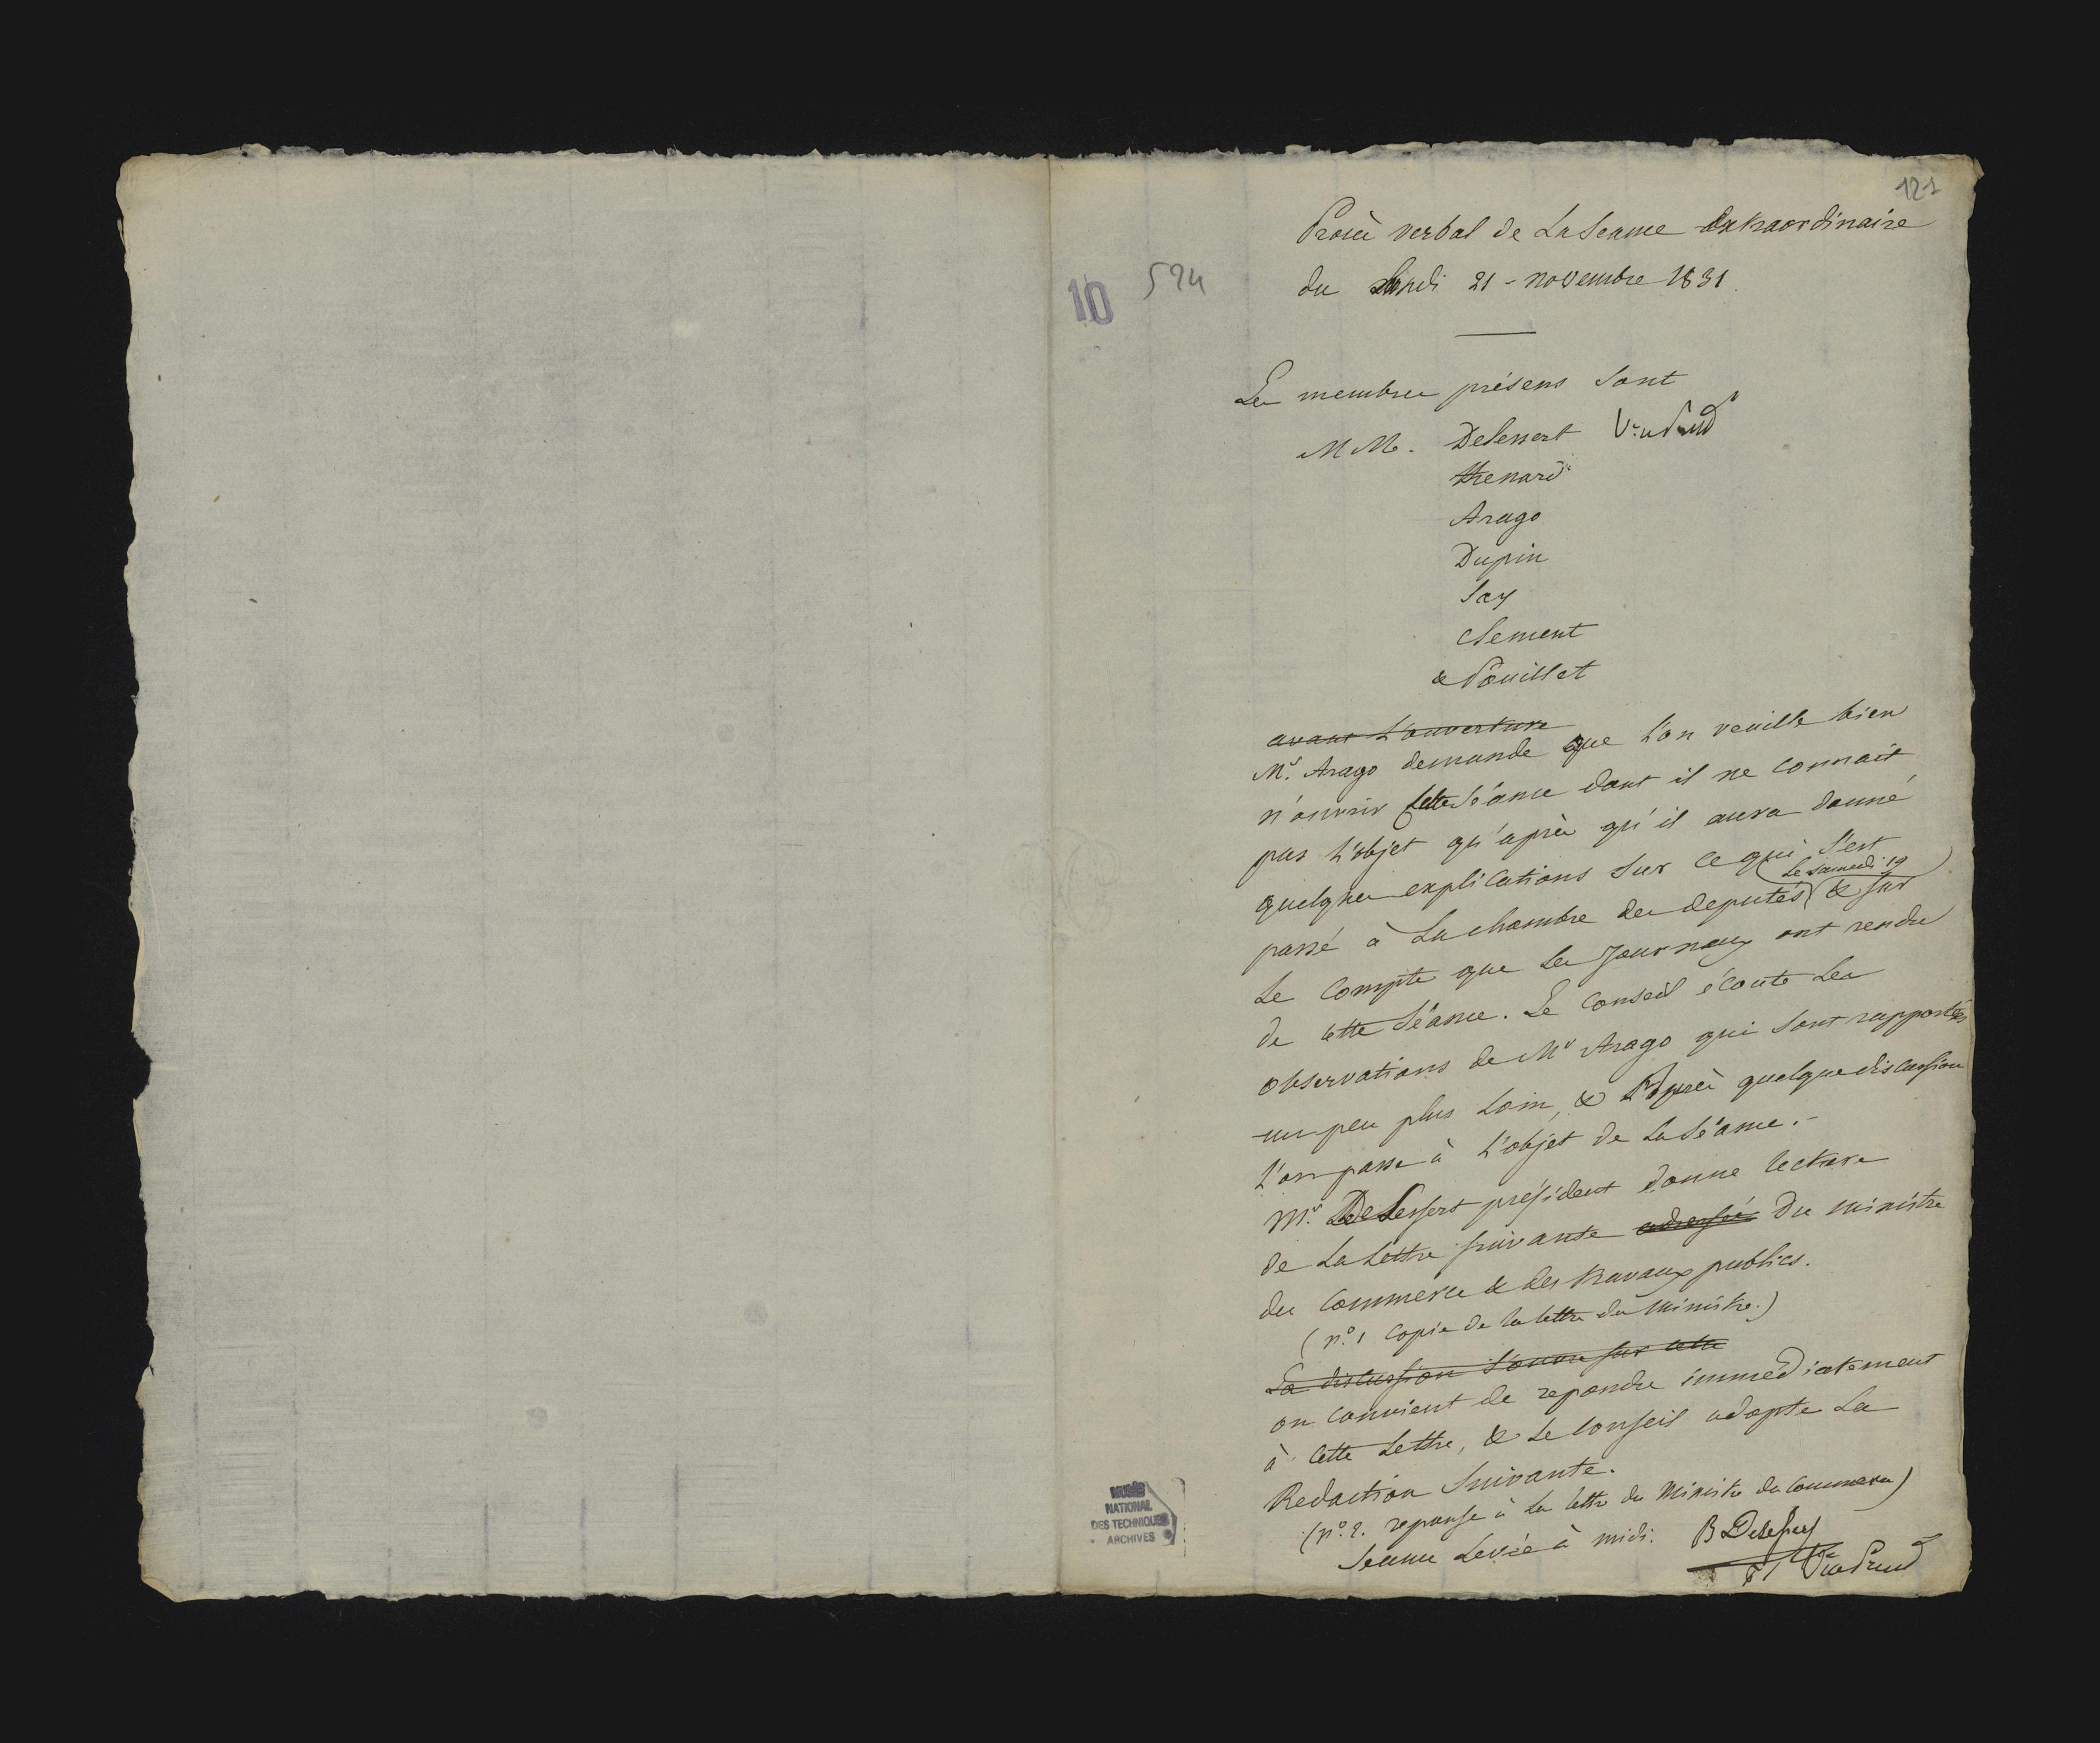 121
10 524
Procès verbal de La Séance extraordinaire
du Lundi 21 - novembre 1831
Les membres présens sont
MM. Delessert V. Président
thenard
Arago
Dupin
Say
Clement
& Pouillet
avant L'ouverture
Mr. Arago demande que l'on veuille bien
n'ouvrir cette Séance dont il ne connait
pas L'objet qu'après qu'il aura donné
quelques explications sur ce qui s'est
Le samedi 19
passé à La chambre des deputés & sur
Le Compte que les Journaux ont rendu
de cette Séance. Le Conseil écoute Les
observations de Mr Arago qui sont rapportées
un peu plus Loin, & après quelque discussion
L'on passe à L'objet de La Séance. -
Mr. DeLessert président donne lecture
de La Lettre suivante adressée du ministre
du Commerce & des travaux publics.
(n.° 1 Copie de la lettre du Ministre.)
La discussion s'ouvre sur cette
on Convient de repondre immédiatement
à cette Lettre, & Le Conseil adopte La
Redaction Suivante.
(n.° 2. reponse à La lettre du Ministre du Commerce)
Séance Levée à midi. B Delessert
MUSÉE
NATIONAL
DES TECHNIQUES
ARCHIVES